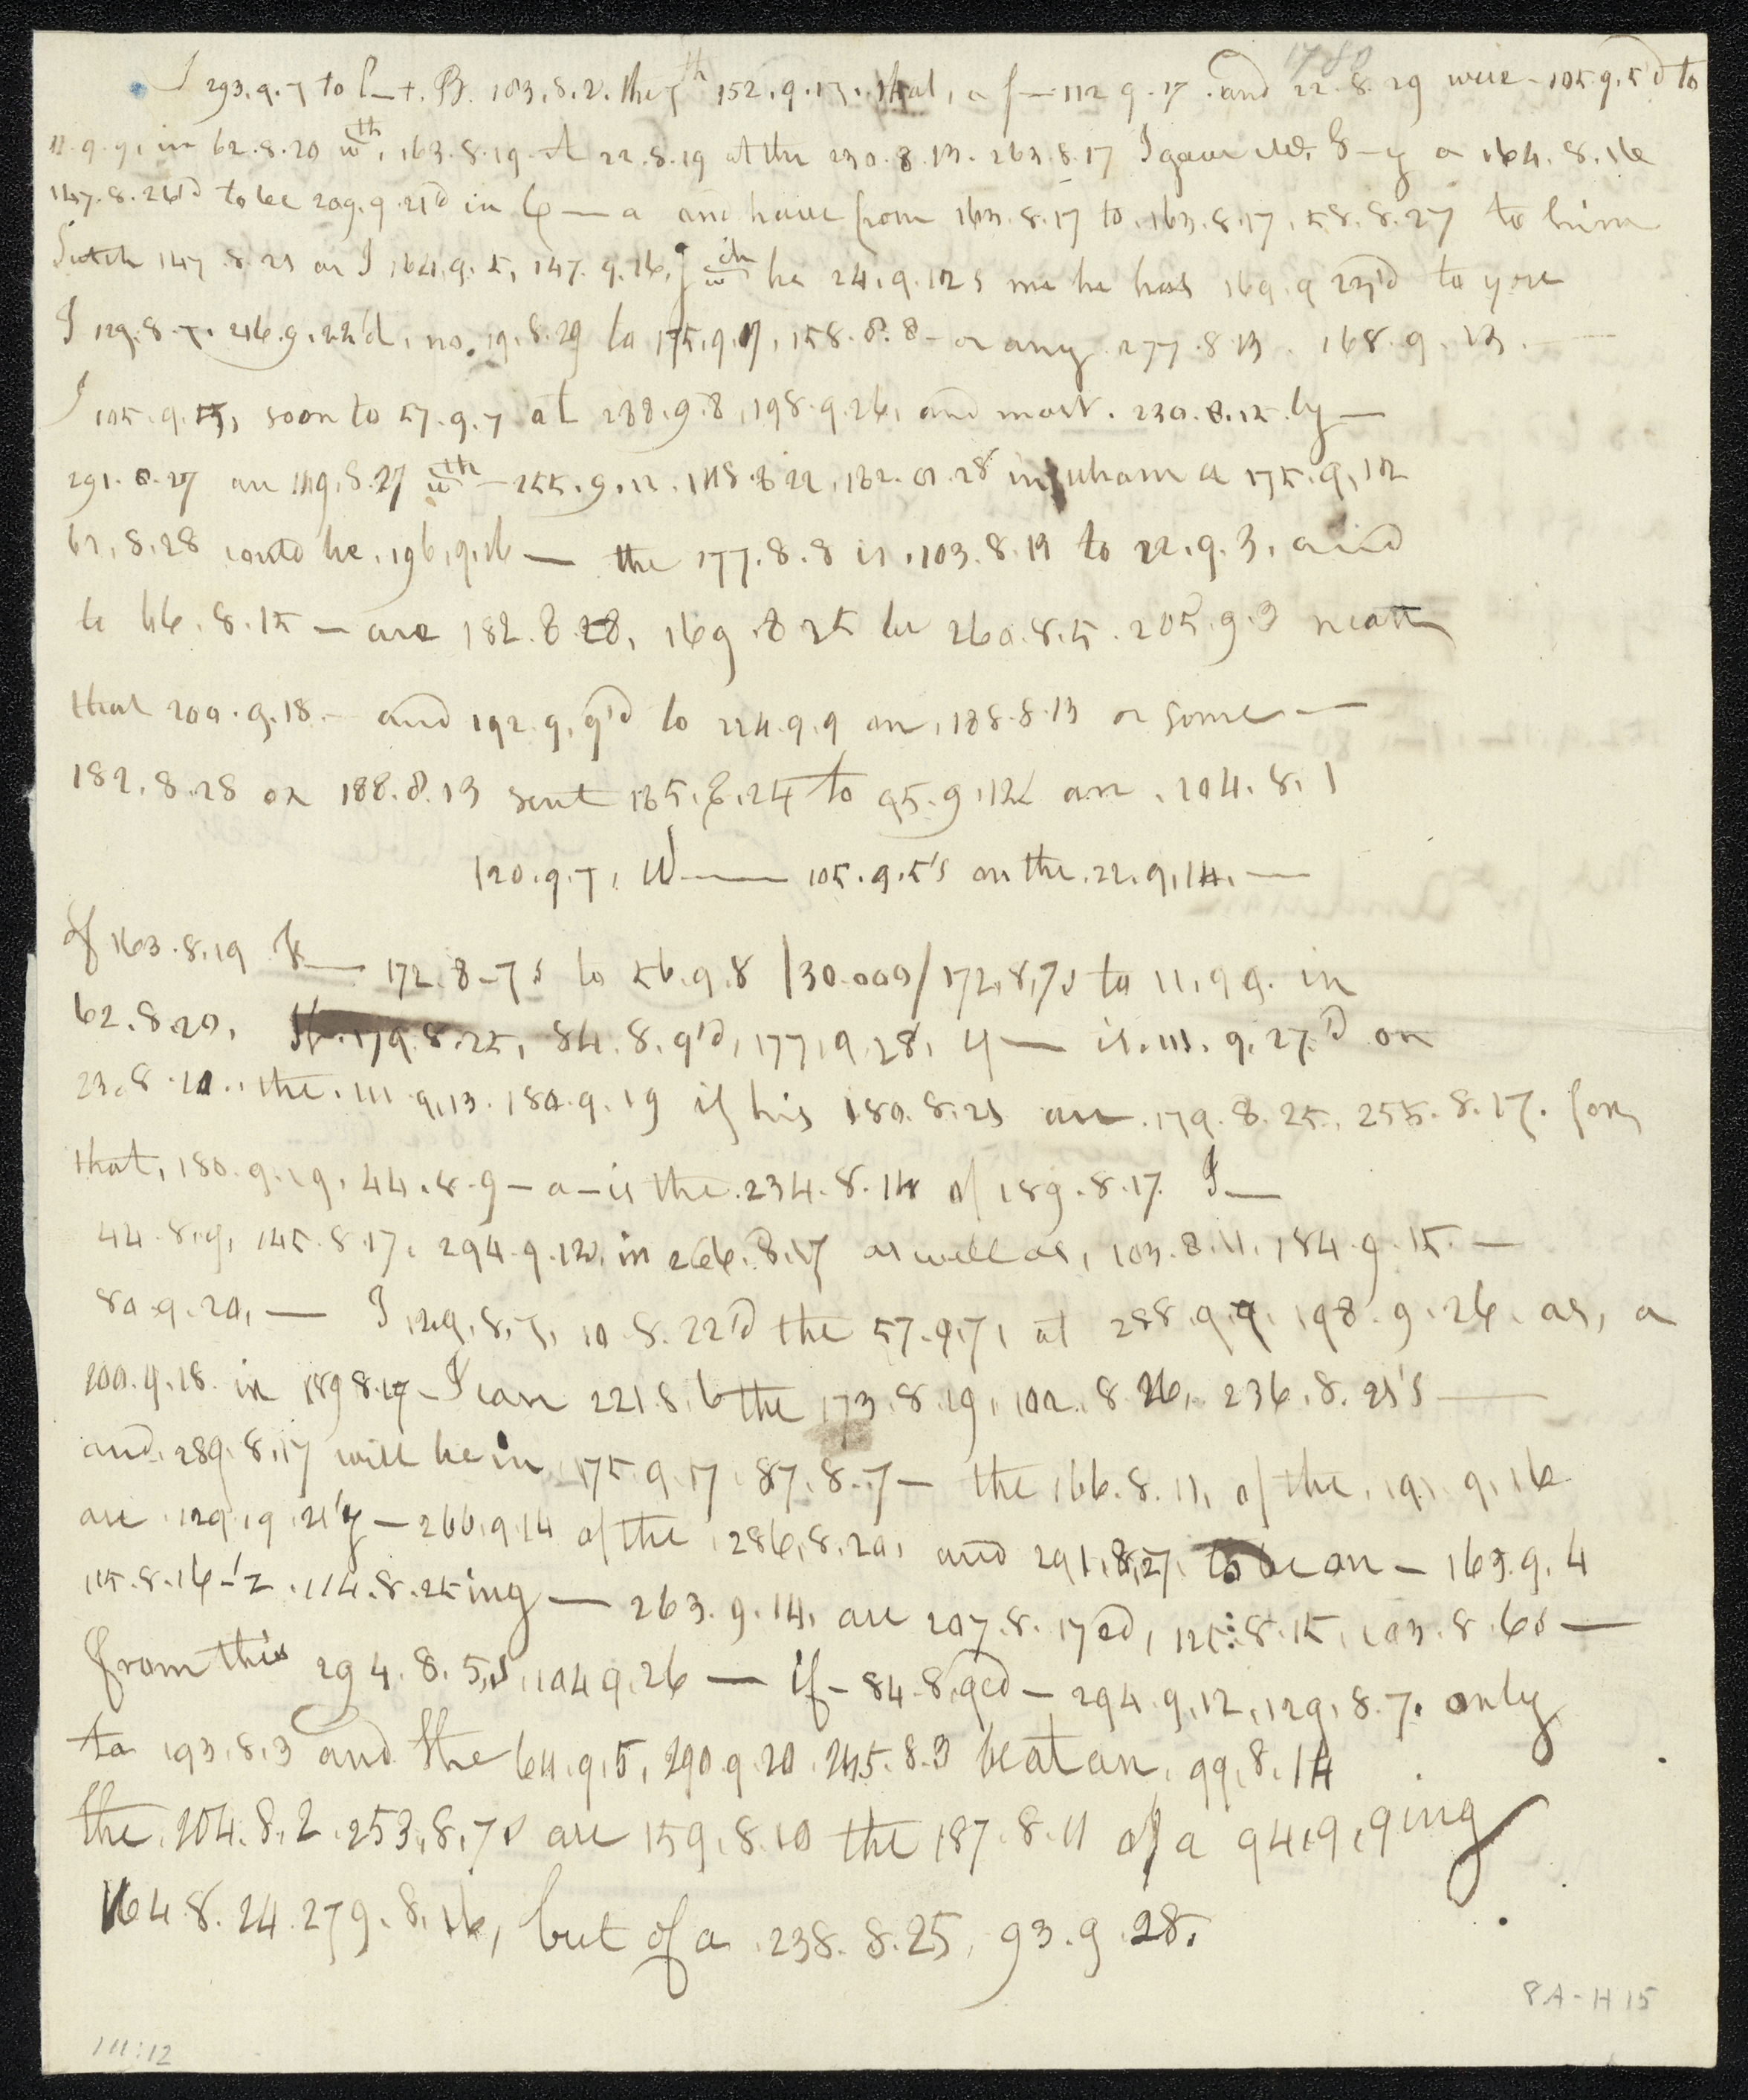 1780
I 293.9.7 to C—t. B. 103.8.2. the 7th 152.9.13. that, a f— 112 9.17. and 22.8.29 were 105.9.5'd to
11.9.9, in 62.8.20 wth, 163.8.19. A 22.8.19 at the 230.8.13. 263.8.17 I gave Mr. S—y a 164.8.16
147.8.26'd to be 209.9.21'd in C—a and have from 163.8.17 to, 163.8.17, 58.8.27 to him
Such 147.8.21 as I 164.9.5, 147.9.16, wch he 24.9.12s me he has 169.9 23'd to you
I 129.8.7. 216.9.22'd, no. 19.8.29 to 175.9.17, 158.8.8 — or any 277.8.13. 168.9.13. —
I 105.9.5, soon to 57.9.7 at 288.9.8, 198.9.26, and most. 230.8.12.ly —
291.8.27 an 149.8.27 wth — 255.9.12. 148.8 22, 182.8.28 in whom a 175.9.12
62.8.28 could be, 196.9.16 — the 177.8.8 is, 103.8.19 to 22.9.3, and
to 66.8.15 — are 182.8.28, 169.8 25 by 260.8.5. 205.9.3 neatt
that 200.9.18. — and 192.9.9'd to 224.9.9 an, 188.8.13 or some —
182.8.28 on 188.8.13 sent 165.8.24 to 95.9.12 an. 204.8.1
120.9.7, W— 105.9.5's on the. 22.9.14. —
Of 163.8.19 K— 172.8-7s to 56.9.8 /30.000/ 172.8.7s to 11.9 9. in
62.8.20, If. 179.8.25, 84.8.9'd, 177.9.28, y — is. 111. 9.27'd on
23.8.10.. the. 111 9.13. 180.9.19 if his 180.8.21 an. 179.8.25, 255.8.17. for,
that, 180.9.19, 44.8.9 — a — is the. 234.8.14 of 189.8.17. I —
44.8.9, 145.8.17. 294.9.12. in 266.8.17 as well as, 103.8.11. 184.9.15. —
80.9.20, — I 129.8.7, 10.8.22'd the 57.9.7, at 288.9.9. 198.9.26. as, a
200.9.18. in 189 8.17 — I can 221.8.6 the 173.8.19, 102.8.26, 236.8.21's —
and. 289.8.17 will be in 175.9.17. 87.8.7 — the 166.8.11, of the, 191.9.16
are. 129.9.21'y — 266.9.14 of the 286.8.20, and 291.8.27. to be an — 163.9.4
115.8.16-'z. 114.8.25ing — 263.9.14, are 207.8.17ed, 125:8.15, 103.8.6s —
from this 294.8.5,s. 104 9.26 — if — 84.8.9ed — 294.9.12, 129.8.7. only
to 193.8.3 and the 64.9.5, 290.9.20. 245.8.3 be at an, 99.8.14
the. 204.8.2. 253.8.7s are 159.8.10 the 187.8.11 of a 94.9.9ing
164.8.24. 279.8.16, but of a 238.8.25, 93.9.28.
8A-H15
111:12